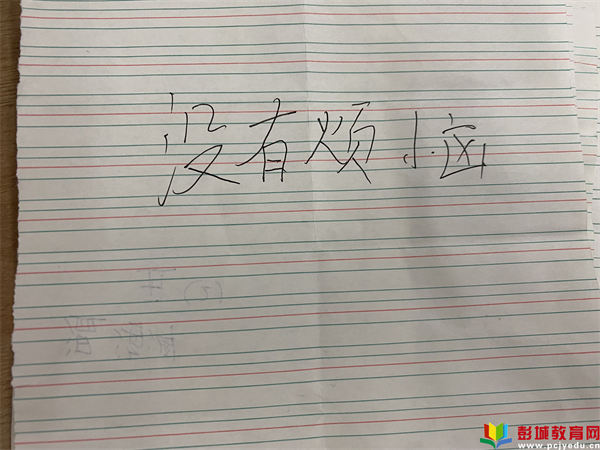 没有烦恼
彭城教育网
www.pcjyedu.cn